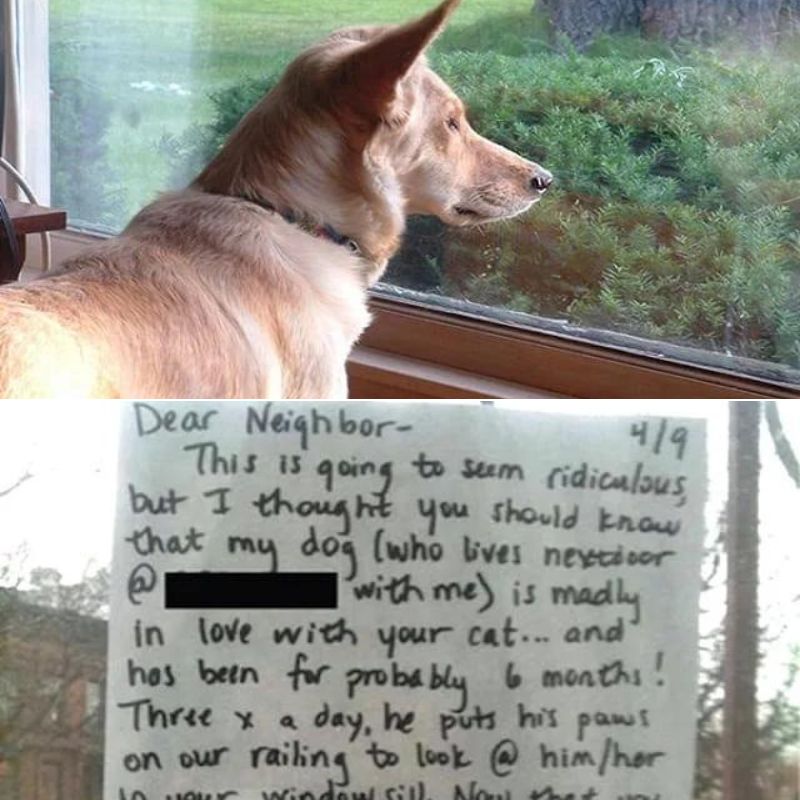 Dear Neighbor-
4/9
This is going to seem ridiculous,
but I thought you should know
that my dog (who lives nextdoor
@ with me) is madly
in love with your cat... and
has been for probably 6 months!
Three x a day, he puts his paws
on our railing to look @ him/her
in your windowsill. Now that you